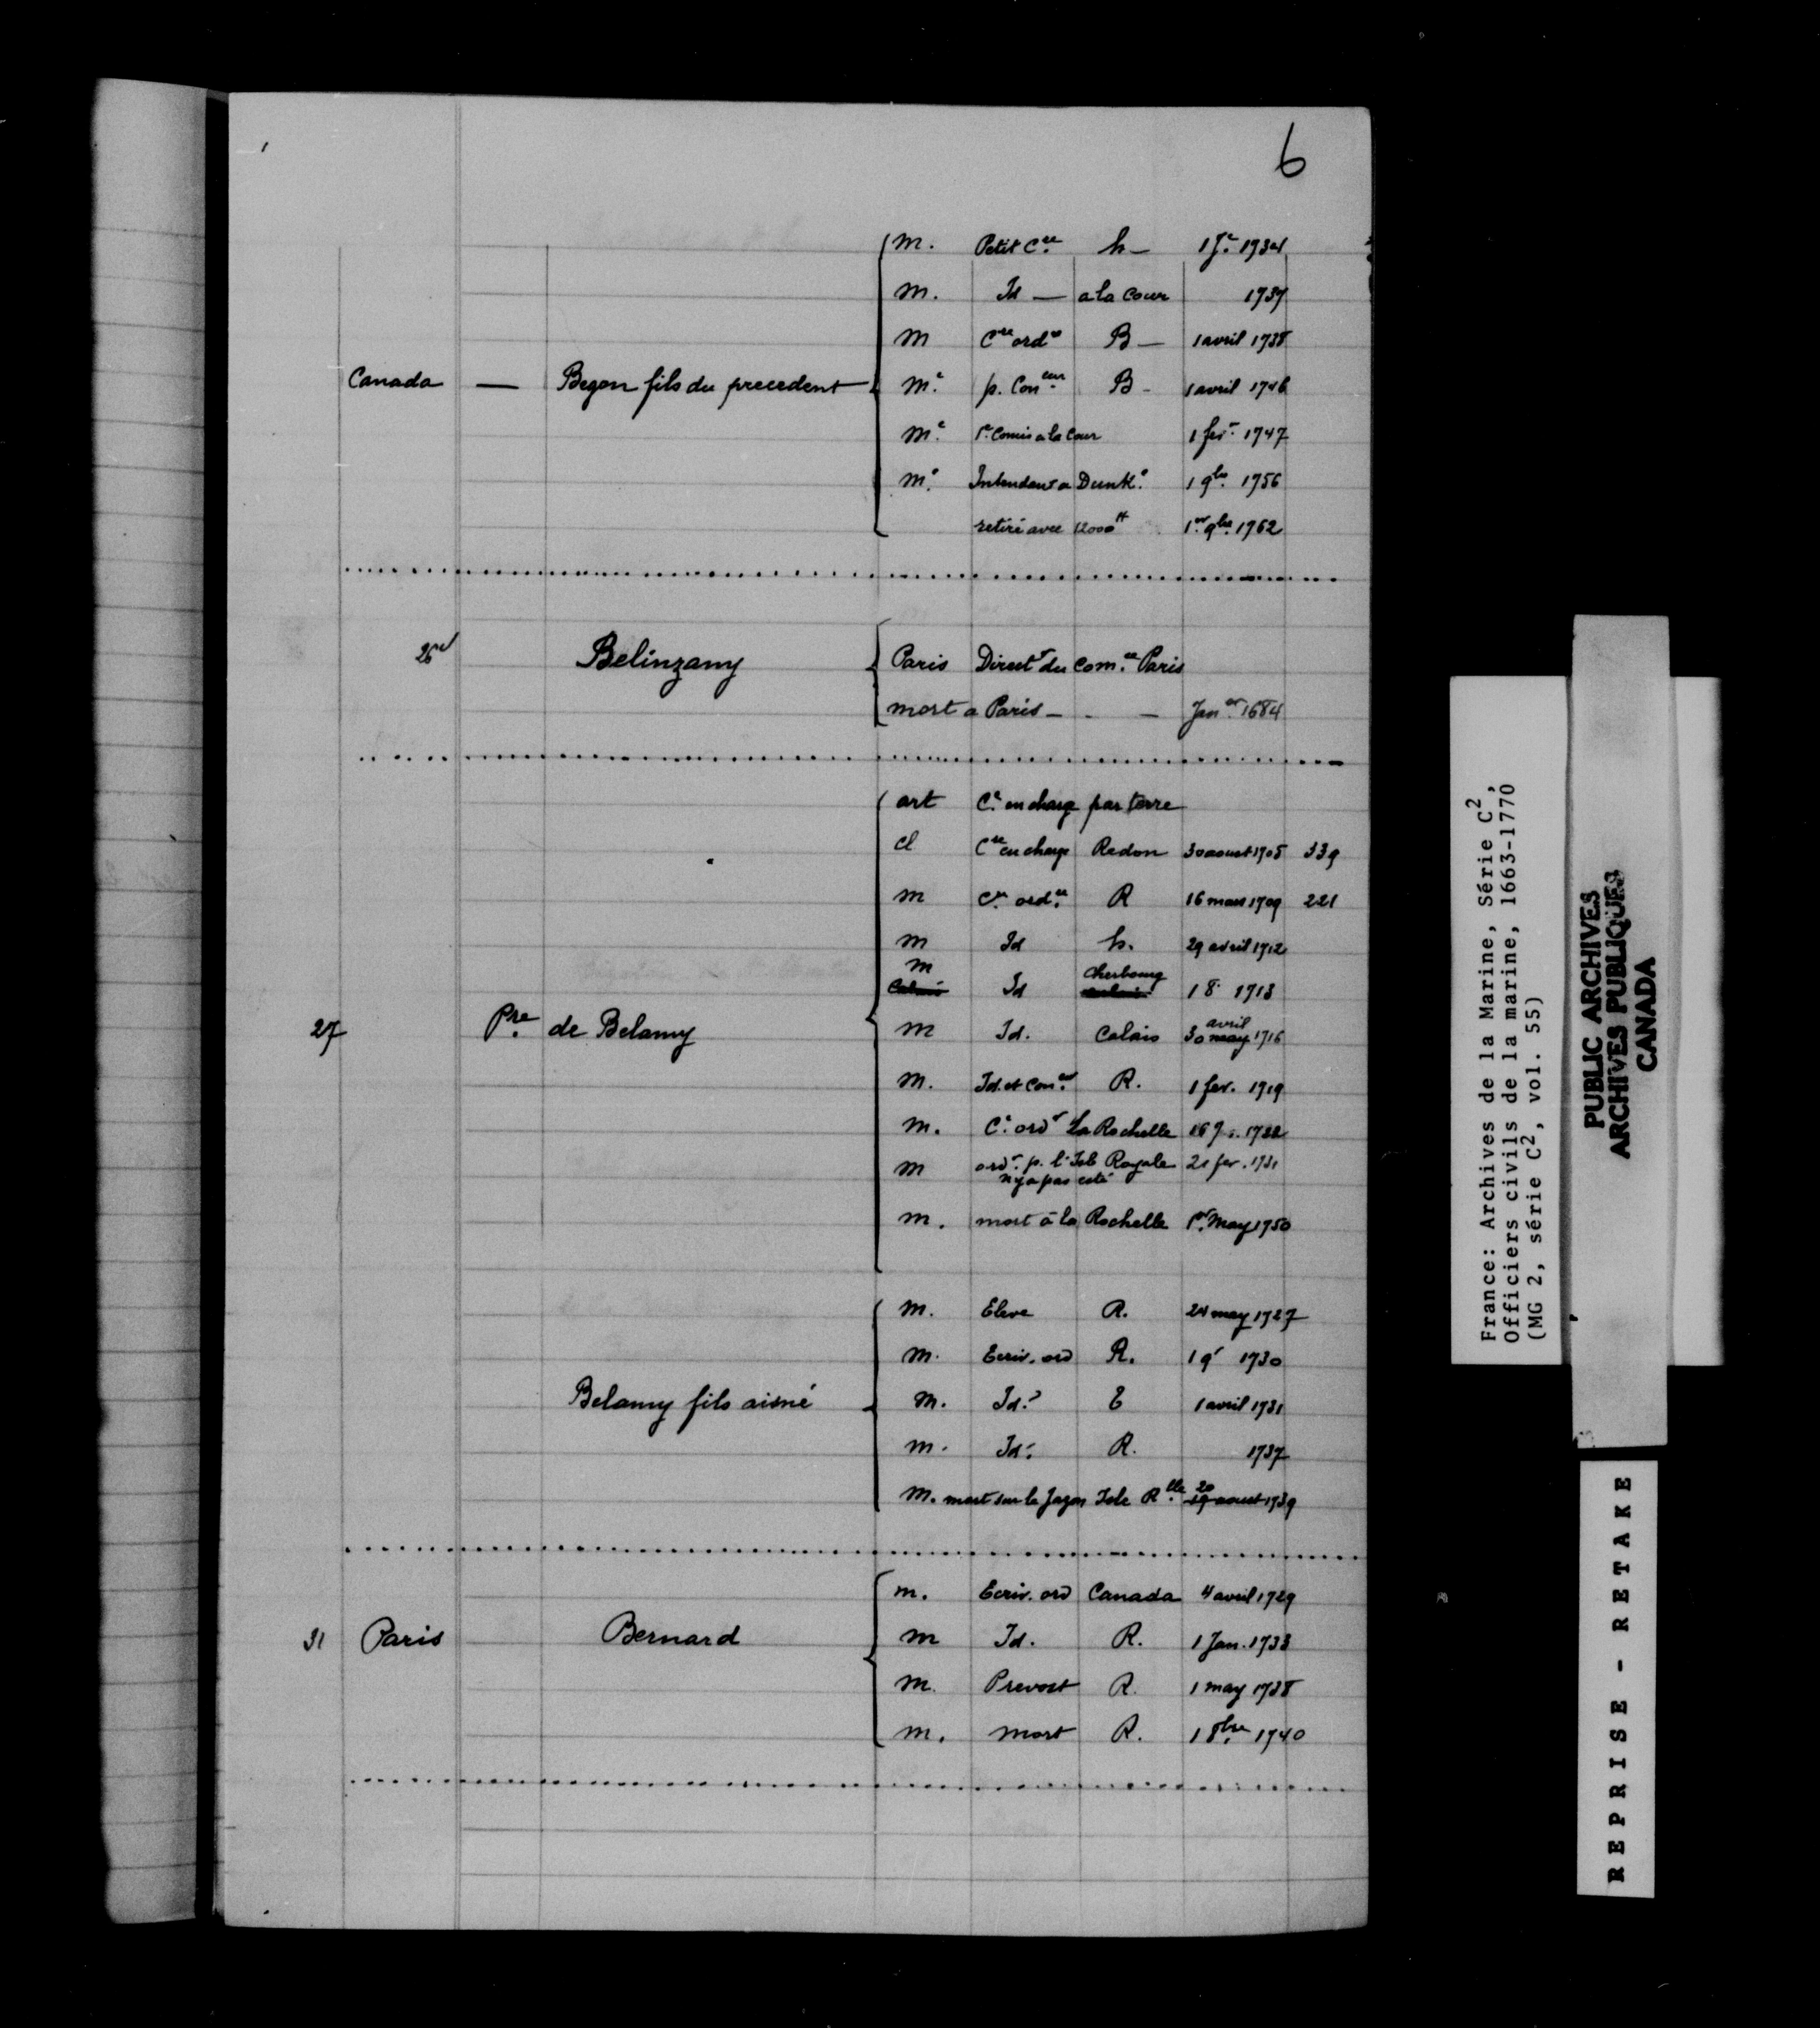 6
m. Petit C.re h — 1 J.e 1734
m. Id — a la Cour 1737
m C.re ord.re B — 1 avril 1738
Canada — Begon fils du precedent m.e p. Con.eur B - 1 avril 1746
m.e 1.er Comis a la Cour 1 fev.r 1747
m.e Intendant a Dunk.e 1 9.bre 1756
retiré avec 12000.tt 1.er 9.bre 1762
26 Belinzany Paris Direct.r du Com.ce Paris
mort a Paris — - — Jan.er 1684
art C.e en charge par terre
cl C.re en charge Redon 30 aoust 1705 339
m C.re ord.re R 16 mars 1709 221
m Id h. 29 avril 1712
m Cherbourg
Calais Id calais 1 8. 1713
27 P.re de Belamy m Id. Calais 30 may 1716
avril
m. Id. et Con.eur R. 1 fev. 1719
m. C.e ord.r La Rochelle 16 1722
m ord.r p. l'Isle Royale 21 fev. 1731
n'y a pas esté
m. mort à la Rochelle 1.er May 1750
m. Eleve R. 24 may 1727
m. Ecriv. ord R. 1 9.r 1730
Belamy fils aisné m. Id. E 1 avril 1731
m. Id. R. 1737
m. mort sur le Jazon Isle R.lle 20 19 aoust 1739
m. Ecriv. ord Canada 4 avril 1729
31 Paris Bernard m Id. R. 1 Jan. 1733
m. Prevost R. 1 may 1738
m. mort R. 1 8.bre 1740
France: Archives de la Marine, Série C2,
Officiers civils de la marine, 1663-1770
(MG 2, série C2, vol. 55)
PUBLIC ARCHIVES
ARCHIVES PUBLIQUES
CANADA
REPRISE - RETAKE